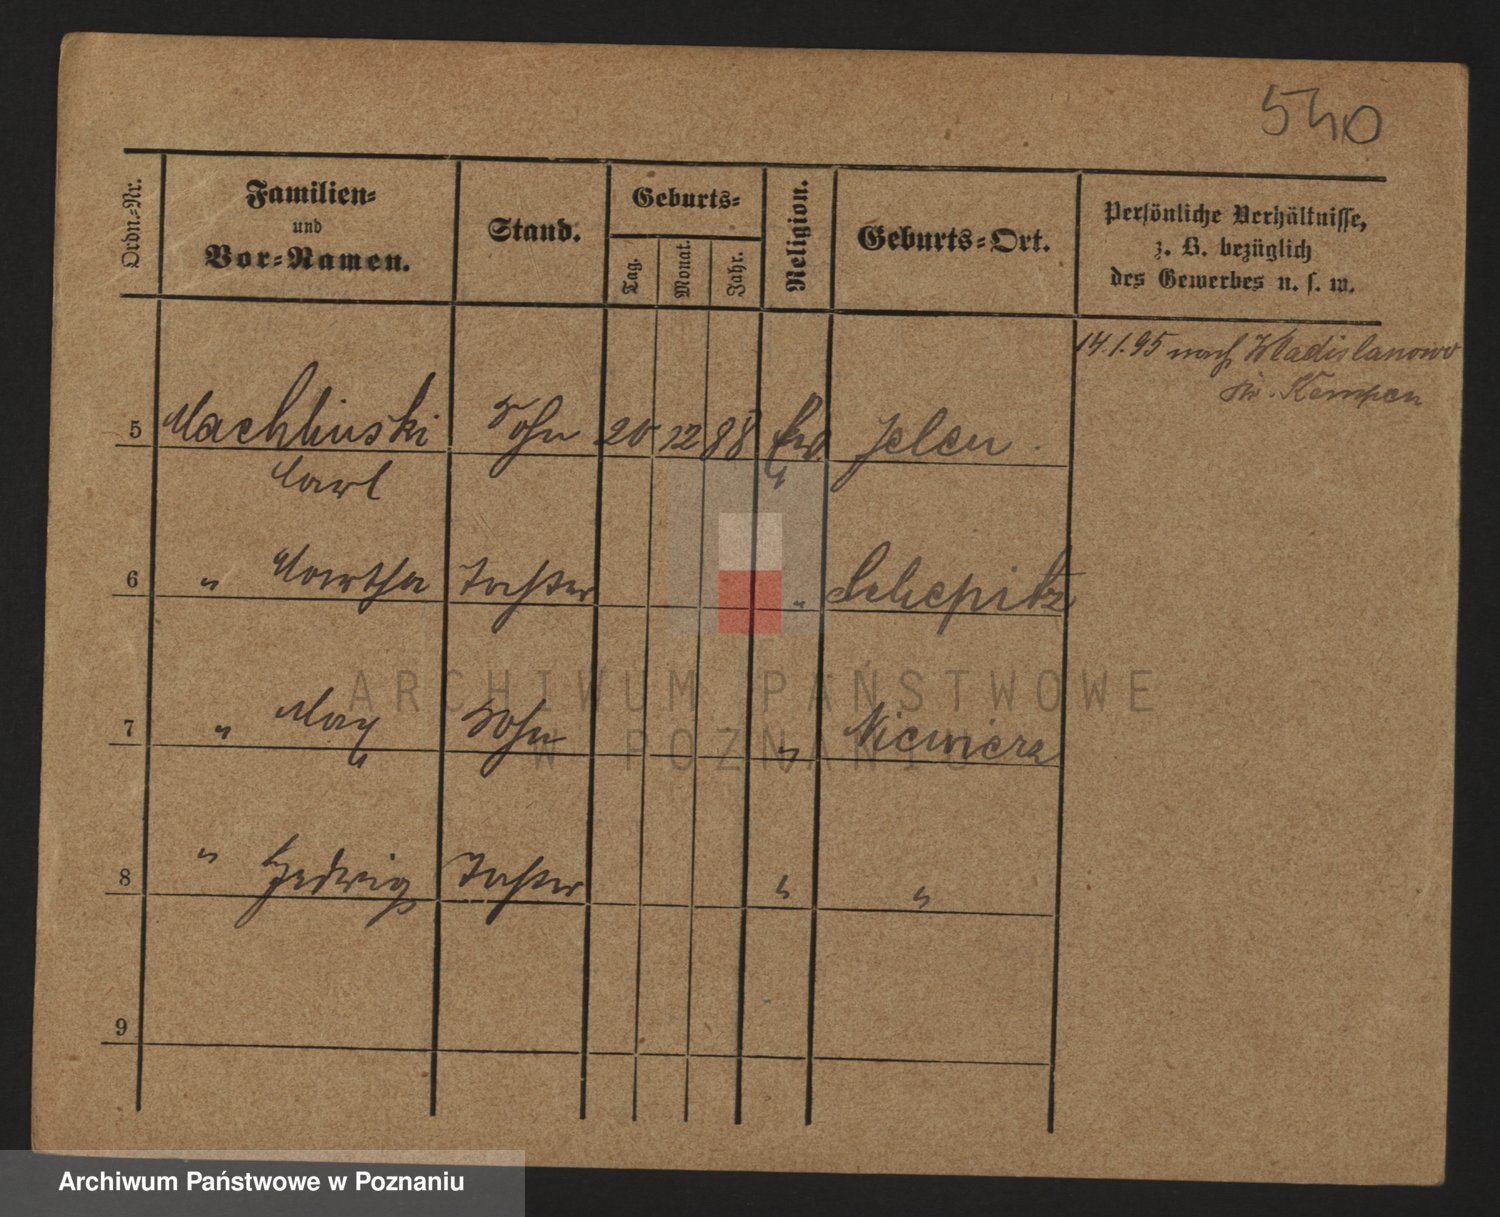 540
Ordn.-Nr.
Familien-
und
Vor-Namen.
Stand.
Geburts-
Tag.
Monat.
Jahr.
Religion.
Geburts-Ort.
Persönliche Verhältnisse,
z. B. bezüglich
des Gewerbes u. s. w.
14.1.95 nach Wladislanowo
Kr. Kempen
5 Machlinski Sohn 20 12 88 Jelen
Carl
6 " Martha Tochter " Schepitz
7 " Max Sohn " Niewierz
8 " Hedwig Tochter " "
9
ARCHIWUM PAŃSTWOWE
W POZNANIU
Archiwum Państwowe w Poznaniu